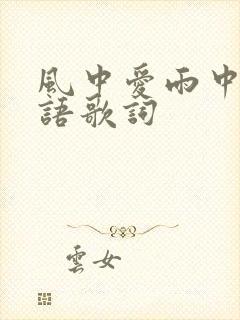 風中愛雨中
語歌詞
雲女